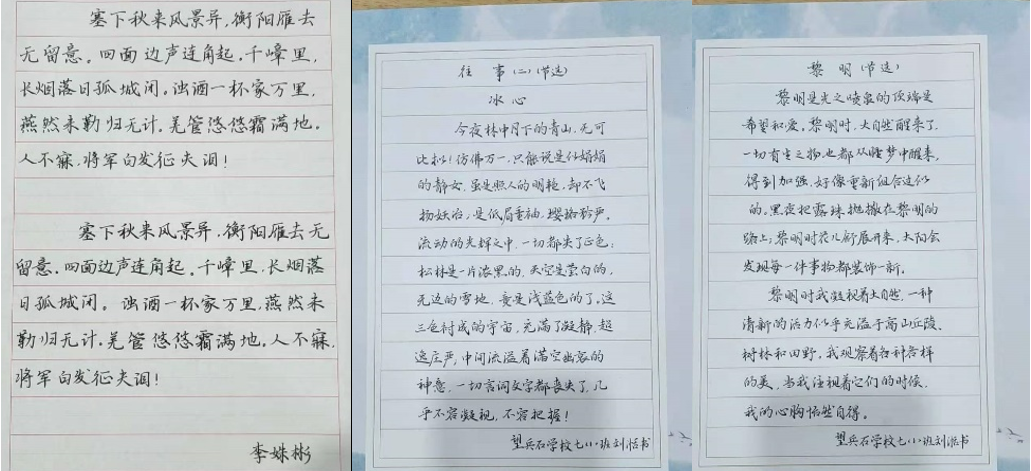 塞下秋来风景异,衡阳雁去
无留意。四面边声连角起。千嶂里,
长烟落日孤城闭。浊酒一杯家万里,
燕然未勒归无计,羌管悠悠霜满地。
人不寐,将军白发征夫泪!
塞下秋来风景异,衡阳雁去无
留意。四面边声连角起。千嶂里,长烟落
日孤城闭。浊酒一杯家万里,燕然未
勒归无计。羌管悠悠霜满地。人不寐,
将军白发征夫泪!
李姝彬
往事(二)(节选)
冰心
今夜林中月下的青山,无可
比拟!仿佛万一,只能说是似娟娟
的静女,虽是照人的明艳,却不飞
扬妖冶,是低眉垂袖,璎珞矜严。
流动的光辉之中,一切都失了正色;
松林是一片浓黑的,天空是莹白的,
无边的雪地,竟是浅蓝色的了。这
三色衬成的宇宙,充满了凝静,超
逸庄严,中间流溢着满空幽哀的
神意,一切言词文字都丧失了,几
乎不容凝视,不容把握!
望兵石学校七八班刘恬书
黎明(节选)
黎明是光之喷泉的顶端是
希望和爱,黎明时,大自然醒来了,
一切有生之物也都从睡梦中醒来,
得到加强,好像重新组合过似
的。黑夜把露珠抛撒在黎明的
路上;黎明时花儿舒展开来,太阳会
发现每一件事物都装饰一新。
黎明时我凝视着大自然,一种
清新的活力似乎充溢于高山丘陵、
树林和田野,我观察着各种各样
的美,当我注视着它们的时候,
我的心胸怡然自得。
望兵石学校七八班刘恬书